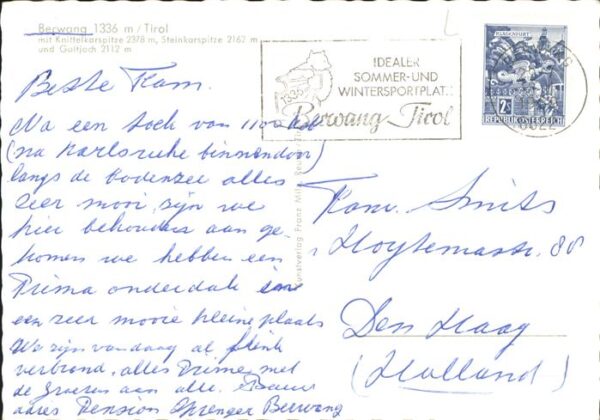 Berwang 1336 m / Tirol
mit Knittelkarspitze 2378 m, Steinkarspitze 2162 m
und Galtjoch 2112 m
IDEALER
SOMMER-UND
WINTERSPORTPLATZ
1336m
Berwang Tirol
KLAGENFURT
2S
REPUBLIK ÖSTERREICH
6622
Kunstverlag Franz Milz, Reutte
Beste Kam.
Na een toch van 1100 km
(na Karlsruhe binnendoor)
langs de Bodenzee alles
zeer mooi, zijn we
hier behouden aan ge-
komen we hebben een
Prima onderdak in
een zeer mooie kleine plaats
We zijn vandaag al flink
verbrand, alles Prima, met
de groeten aan alle.
adres Pension Sprenger Berwang
Kam. Smits
Hoytemastr. 80
Den Haag
(Holland)